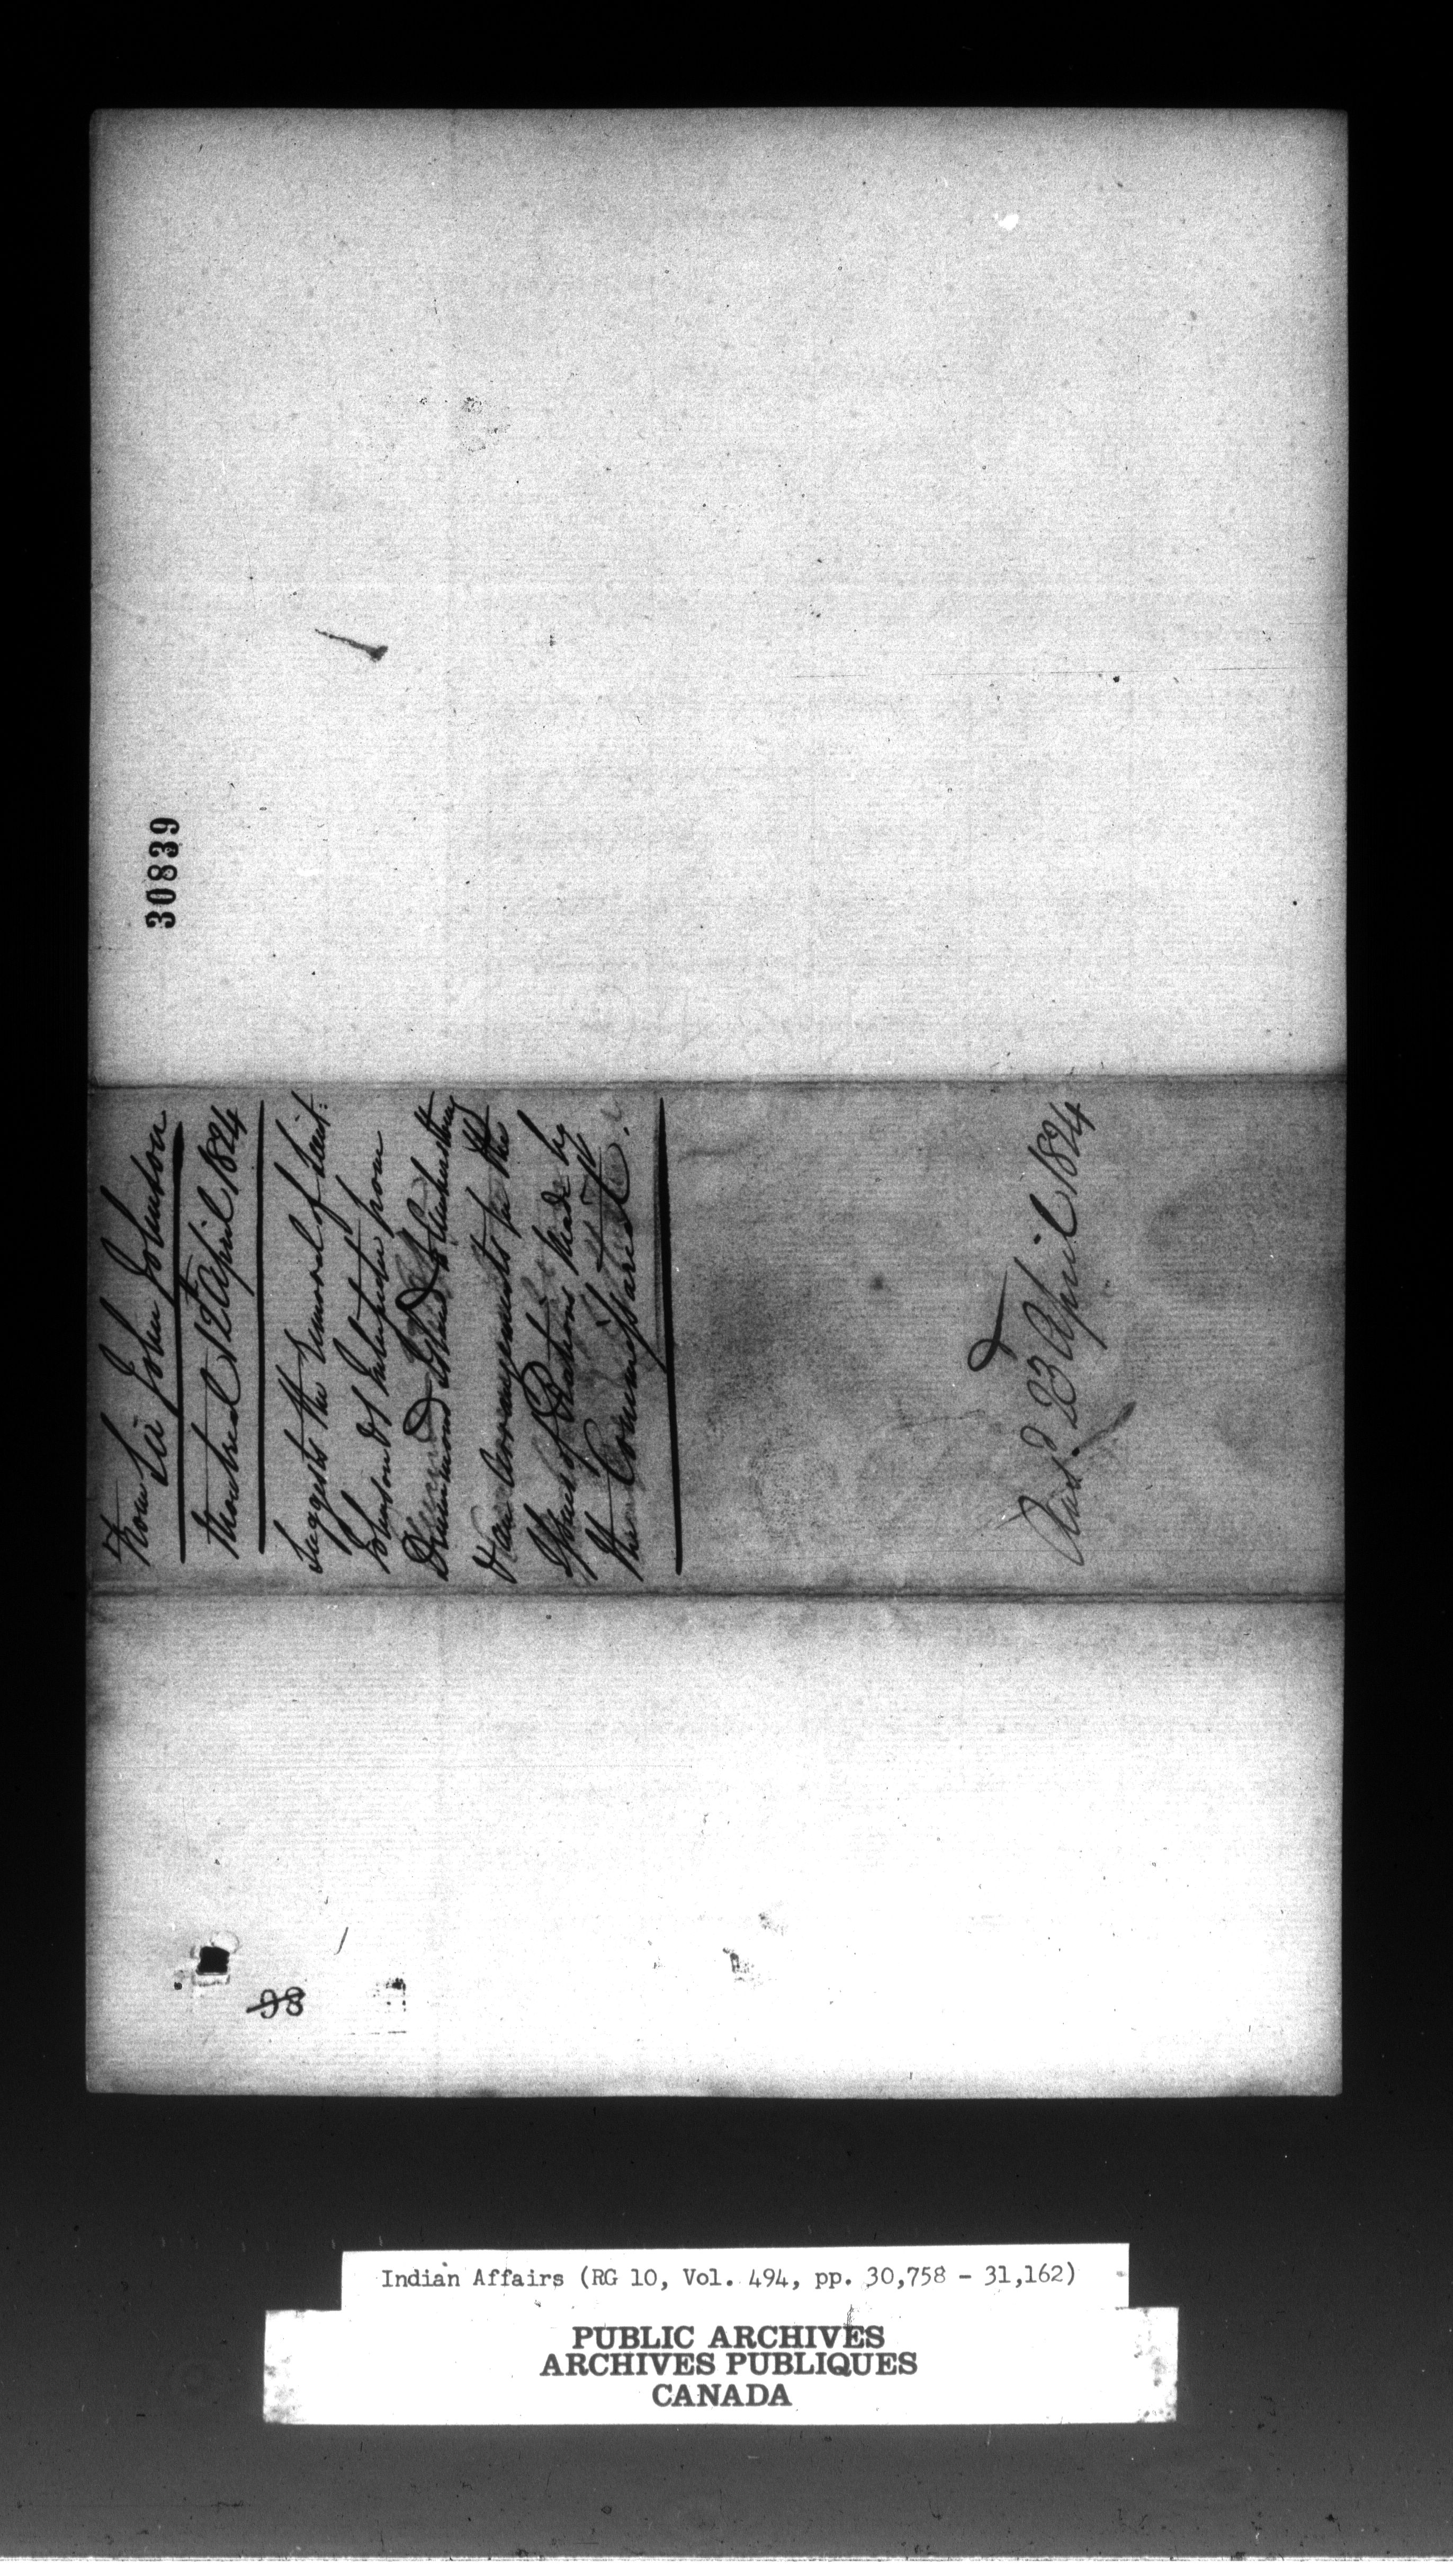 30839
From Sir John Johnson
Montreal 12th April 1824
Suggests the removal of Lieut:
Johnson & Interpreter from
Drummond Island to Amherstburg
& an arrangements for the
Issues of Rations made by
the Commissariat.
Ansd. 23 April 1824
98
Indian Affairs (RG 10, Vol. 494, pp. 30,758 - 31,162)
PUBLIC ARCHIVES
ARCHIVES PUBLIQUES
CANADA